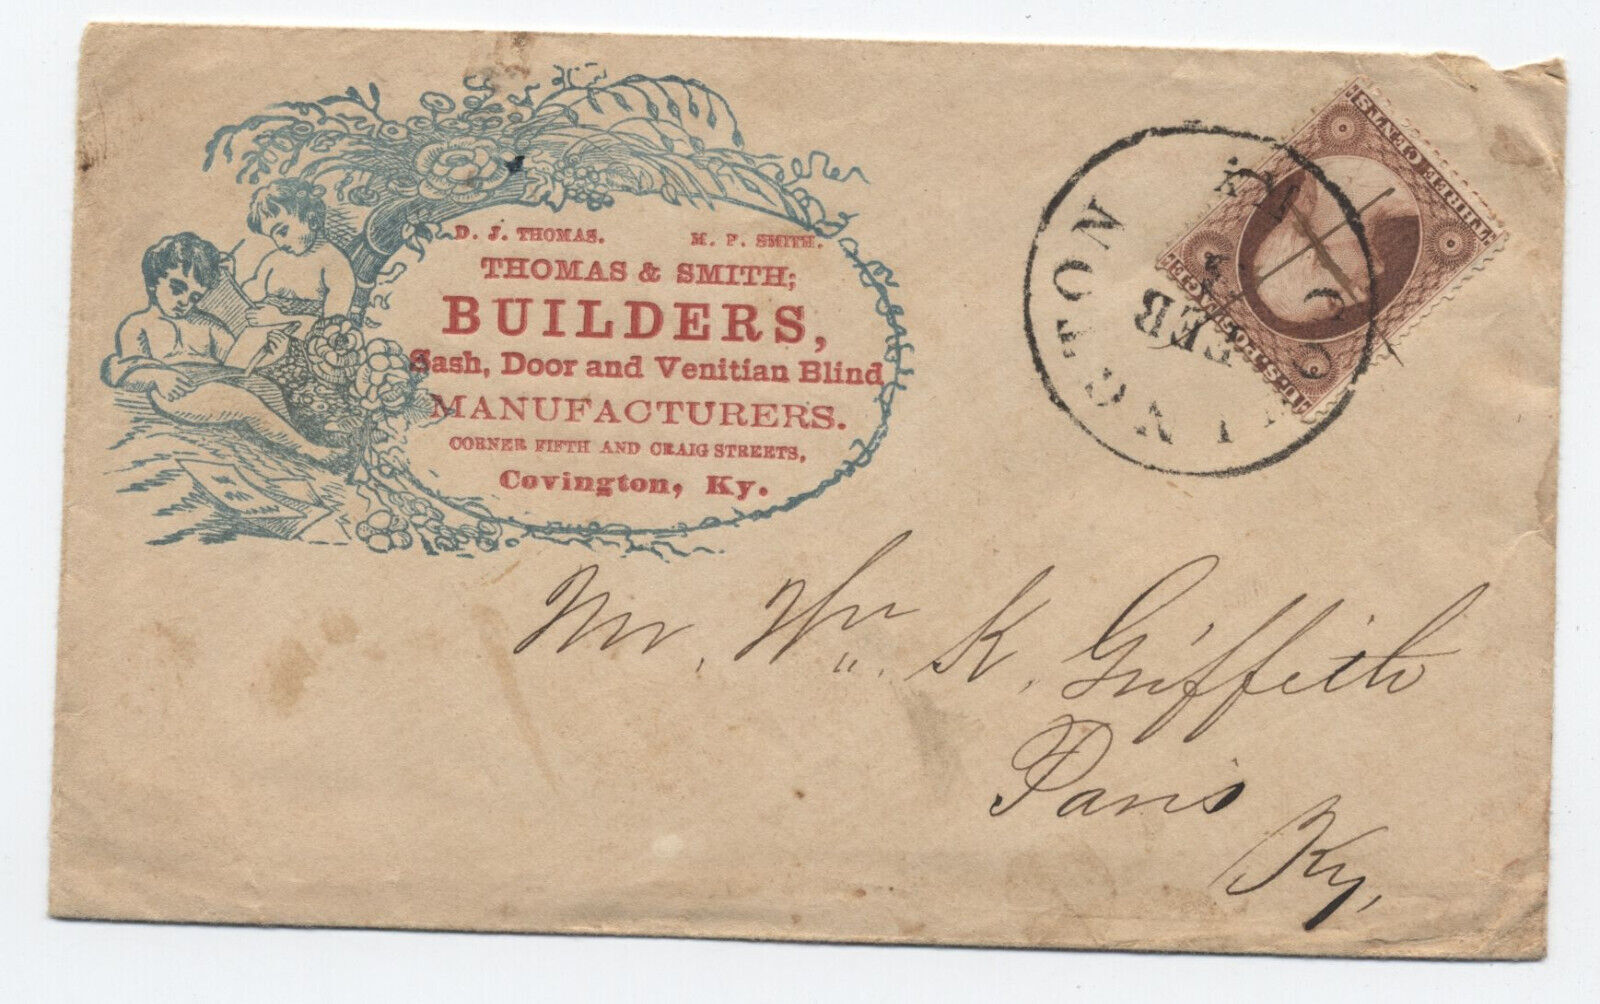 D. J. THOMAS. M. P. SMITH.
THOMAS & SMITH;
BUILDERS,
Sash, Door and Venitian Blind
MANUFACTURERS.
CORNER FIFTH AND CRAIG STREETS,
Covington, Ky.
THREE CENTS
U.S. POSTAGE
COVINGTON
KY
FEB
Mr. Wm. K. Griffith
Paris
Ky,